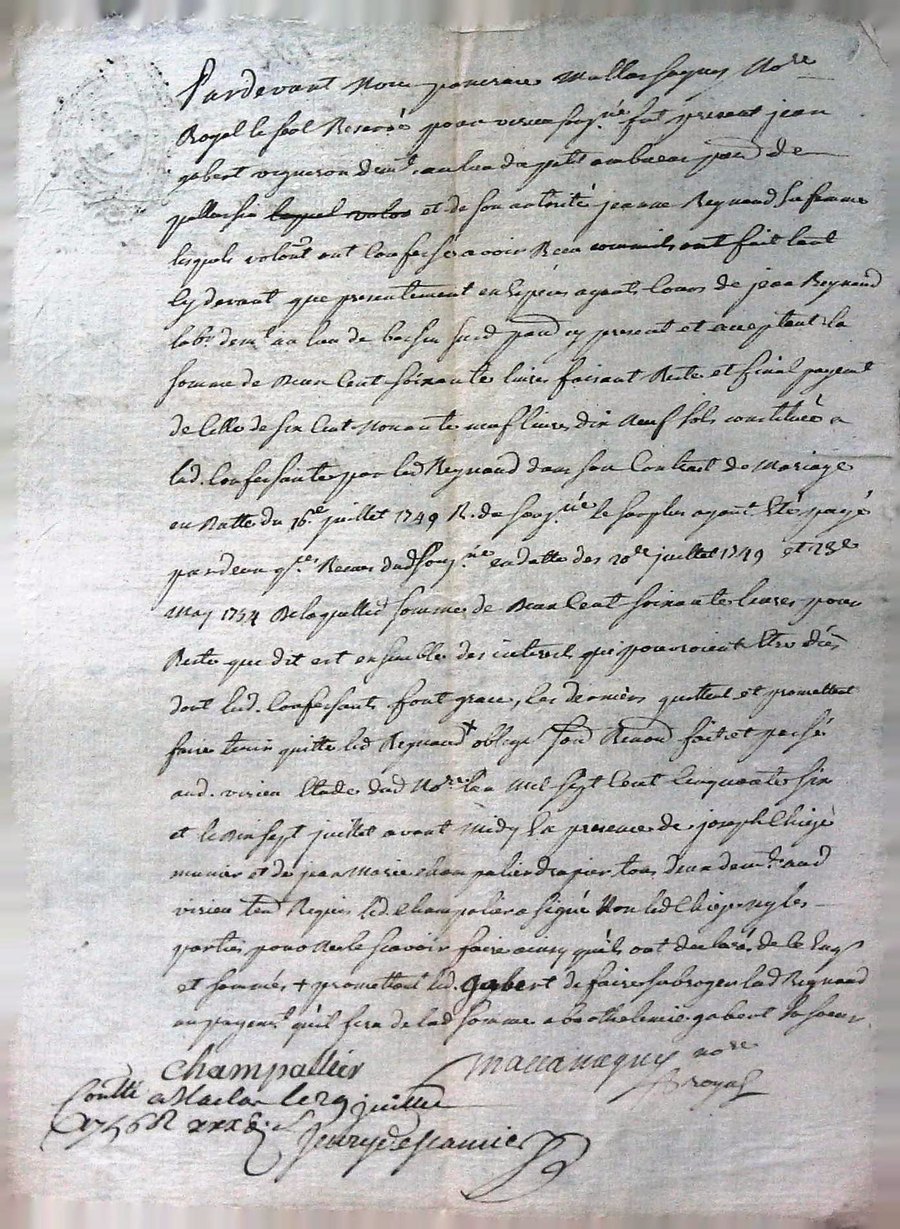 Pardevant Nous Mre
Royal le seel Reservé pour virieu sousgné fut present jean
gabert vigneron demt au lieu du petit de
pellussin laquel volon et de son autorité jeanne Reynaud sa femme
lesquels volont ont Confessé avoir Receu comm' ils ont fait tant
Cy devant que presentement en Espèces ayants Cours de jean Reynaud
labr demt au lieu de sud parr cy present et acceptant la
somme de Deux Cent soixante livres faisant Reste et final payemt
de Celle de six Cent Nonante neuf livres dix Neuf sols constituée a
lad. Confessante par led Reynaud dans son Contract de Mariage
en Datte du 16e juillet 1749 R. du sousne le surplus ayant Eté payé
par deux Receus dud sousne en datte des 20e juillet 1749 et 23e
May 1754 De laquelle somme de Deux Cent soixante livres pour
Reste que dit est ensemble des interests qui pourroient Etre dües
dont lesd. Confessants font grace, Les derniers quittent et promettent
faire tenir quitte led Reynaud + oblige fait et passé
aud. virieu Etude dud Nore l'an Mil sept Cent Cinquante six
et le Dix sept juillet avant Midy En presence de joseph
munier et de jean Marie Champalier drapier tous deux demts aud
virieu tem Requis led. Champalier a signé Non led Ny les
parties pour Ne le scavoir faire ainsy qu'ils ont declaré de ce Enqs
et sommés + promettant led. gabert de faire subroger led Reynaud
au payemt qu'il fera de lad somme a Barthelemie gabert sa soeur.
Champallier nore
royal
Conllé a Maclas le 29 juillet
1756 R